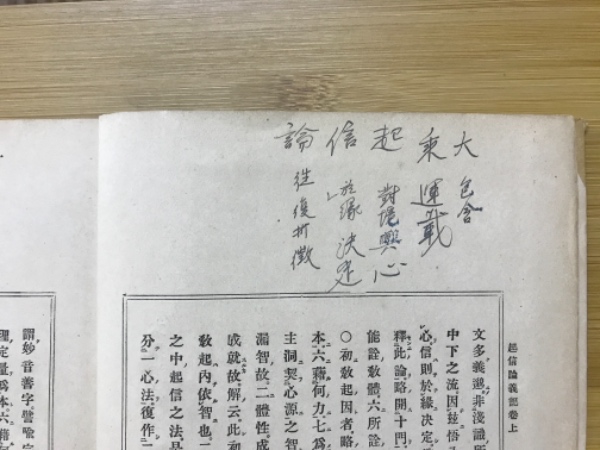 大包含
乘運載
起對境興心
信於緣決定
論往復折徵
起信論義記卷上
文多義邈非淺識所
中下之流因茲悟
心信則於緣決定
釋此論略開十門
能詮教體六所詮
○初教起因者略
本六藉何力七爲
主洞契心源之智
漏智故二體性成
成就故解云此初
教起內依智也二
之中起信之法是
分一心法復作二
謂妙音善字譬喻
理定量爲本六藉